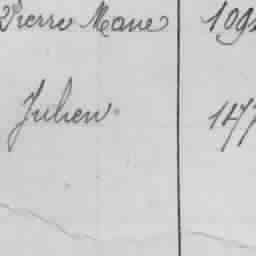 Pierre Marie 109
Julien 147